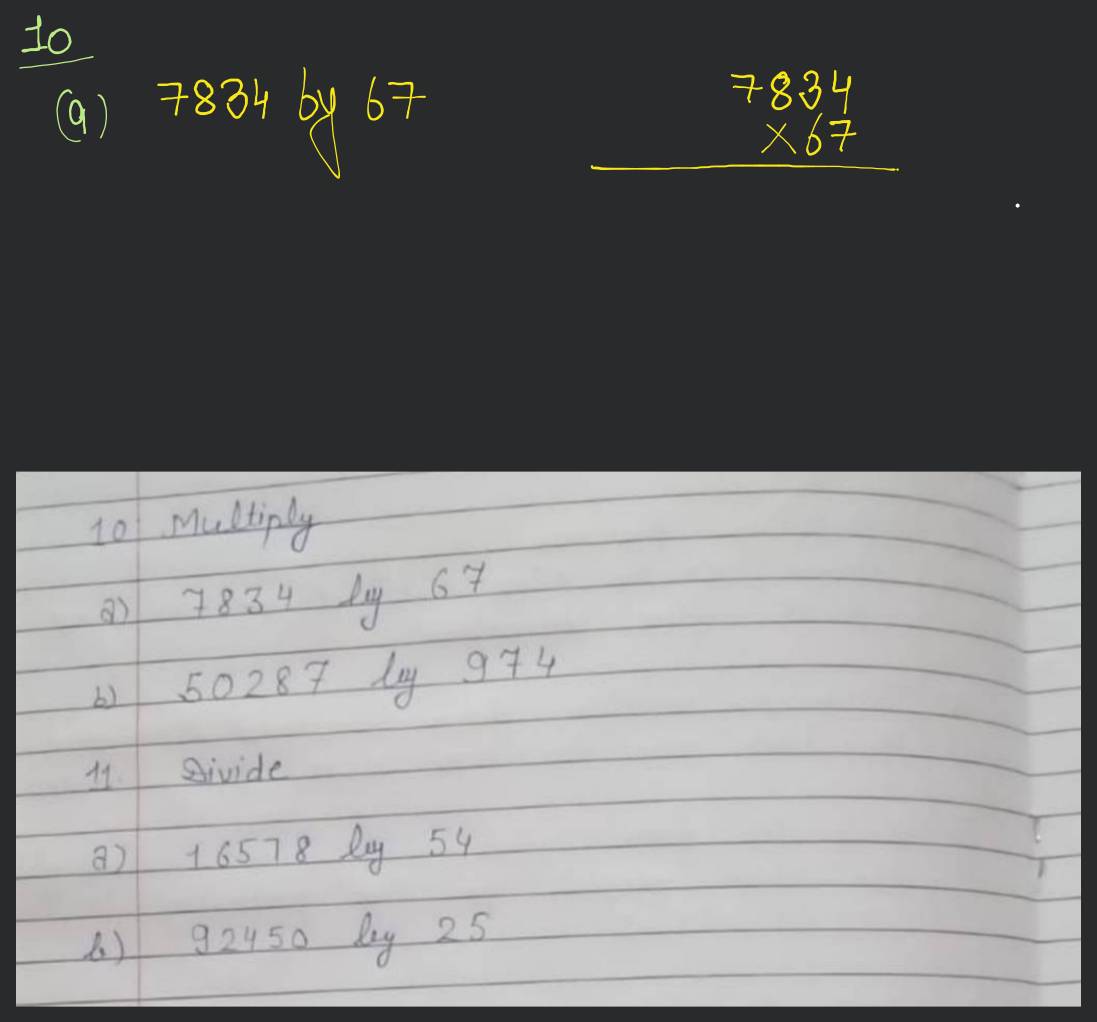 10
(a) 7834 by 67
7834
×67
10 Multiply
a) 7834 by 67
b) 50287 by 974
11. Divide
a) 16578 by 54
b) 92450 by 25